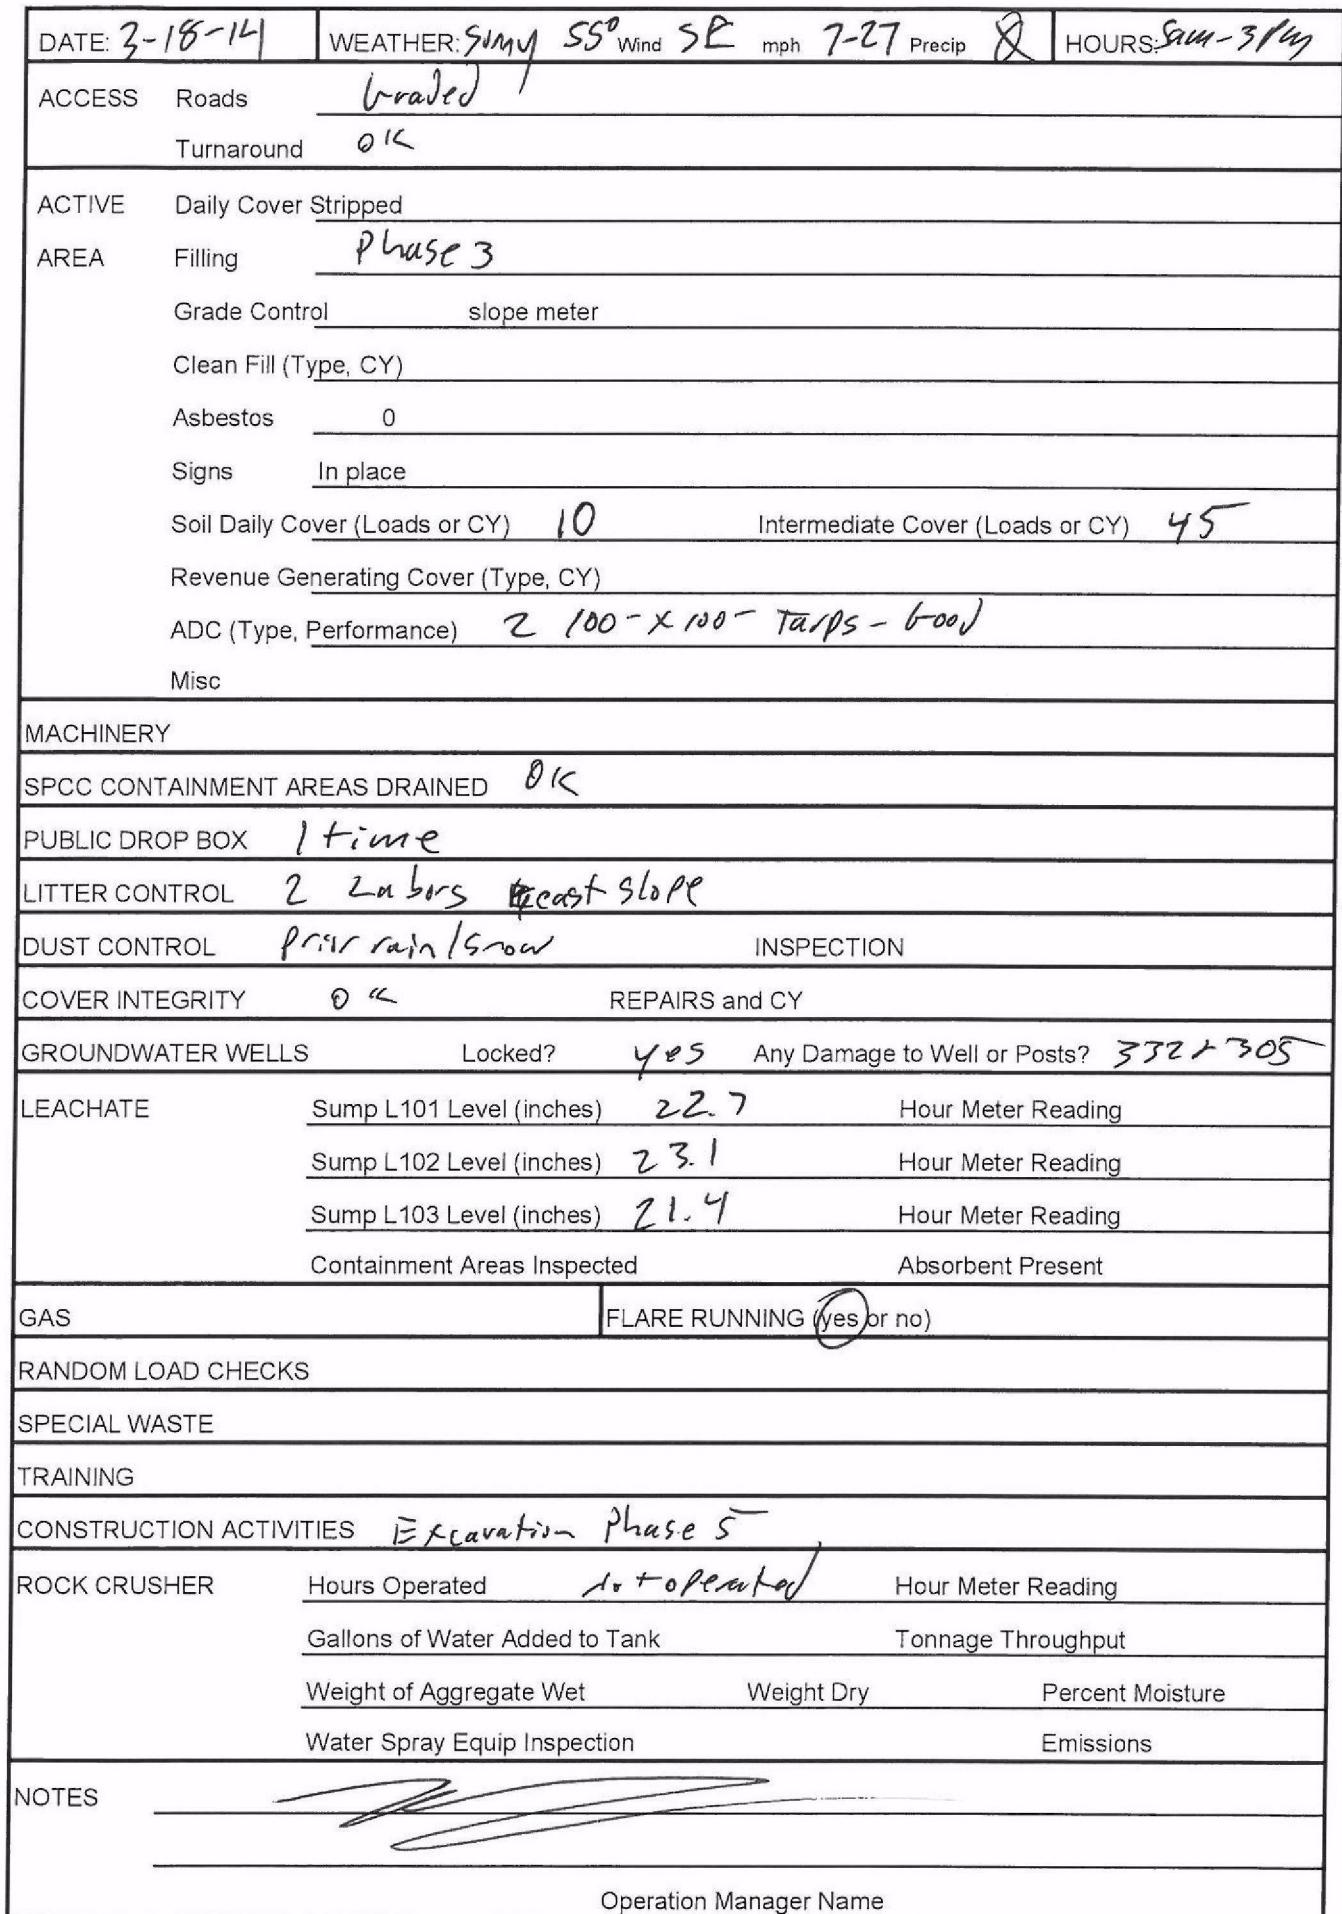 DATE: 3-18-14 WEATHER: Sunny 55° Wind SE mph 7-27 Precip 0 HOURS: 5am-3pm
ACCESS Roads Graded
Turnaround OK
ACTIVE Daily Cover Stripped
AREA Filling Phase 3
Grade Control slope meter
Clean Fill (Type, CY)
Asbestos 0
Signs In place
Soil Daily Cover (Loads or CY) 10 Intermediate Cover (Loads or CY) 45
Revenue Generating Cover (Type, CY)
ADC (Type, Performance) 2 100-x100- Tarps - Good
Misc
MACHINERY
SPCC CONTAINMENT AREAS DRAINED OK
PUBLIC DROP BOX 1 time
LITTER CONTROL 2 Labors east slope
DUST CONTROL Prior rain/snow INSPECTION
COVER INTEGRITY OK REPAIRS and CY
GROUNDWATER WELLS Locked? yes Any Damage to Well or Posts? 332 & 305
LEACHATE Sump L101 Level (inches) 22.7 Hour Meter Reading
Sump L102 Level (inches) 23.1 Hour Meter Reading
Sump L103 Level (inches) 21.4 Hour Meter Reading
Containment Areas Inspected Absorbent Present
GAS FLARE RUNNING (yes or no)
RANDOM LOAD CHECKS
SPECIAL WASTE
TRAINING
CONSTRUCTION ACTIVITIES Excavation Phase 5
ROCK CRUSHER Hours Operated Not operated Hour Meter Reading
Gallons of Water Added to Tank Tonnage Throughput
Weight of Aggregate Wet Weight Dry Percent Moisture
Water Spray Equip Inspection Emissions
NOTES
Operation Manager Name